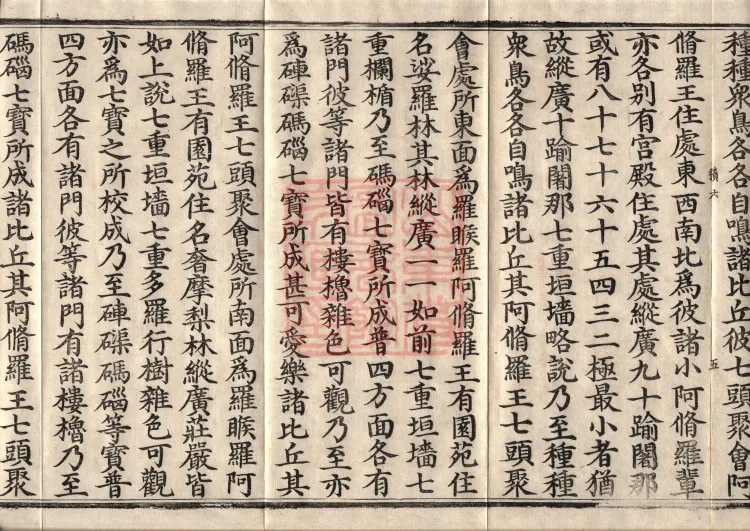 種種衆鳥各各自鳴諸比丘彼七頭聚會阿
脩羅王住處東西南北爲彼諸小阿脩羅輩
亦各别有宫殿住處其處縱廣九十踰闍那
或有八十七十六十五四三二極最小者猶
故縱廣十踰闍那七重垣墻略說乃至種種
衆鳥各各自鳴諸比丘其阿脩羅王七頭聚
積六
五
會處所東面爲羅睺羅阿脩羅王有園苑住
名娑羅林其林縱廣一一如前七重垣墻七
重欄楯乃至碼碯七寶所成普四方面各有
諸門彼等諸門皆有樓櫓雜色可觀乃至亦
爲硨磲碼碯七寶所成甚可愛樂諸比丘其
阿脩羅王七頭聚會處所南面爲羅睺羅阿
脩羅王有園苑住名奢摩梨林縱廣莊嚴皆
如上說七重垣墻七重多羅行樹雜色可觀
亦爲七寶之所校成乃至硨磲碼碯等寶普
四方面各有諸門彼等諸門有諸樓櫓乃至
碼碯七寶所成諸比丘其阿脩羅王七頭聚